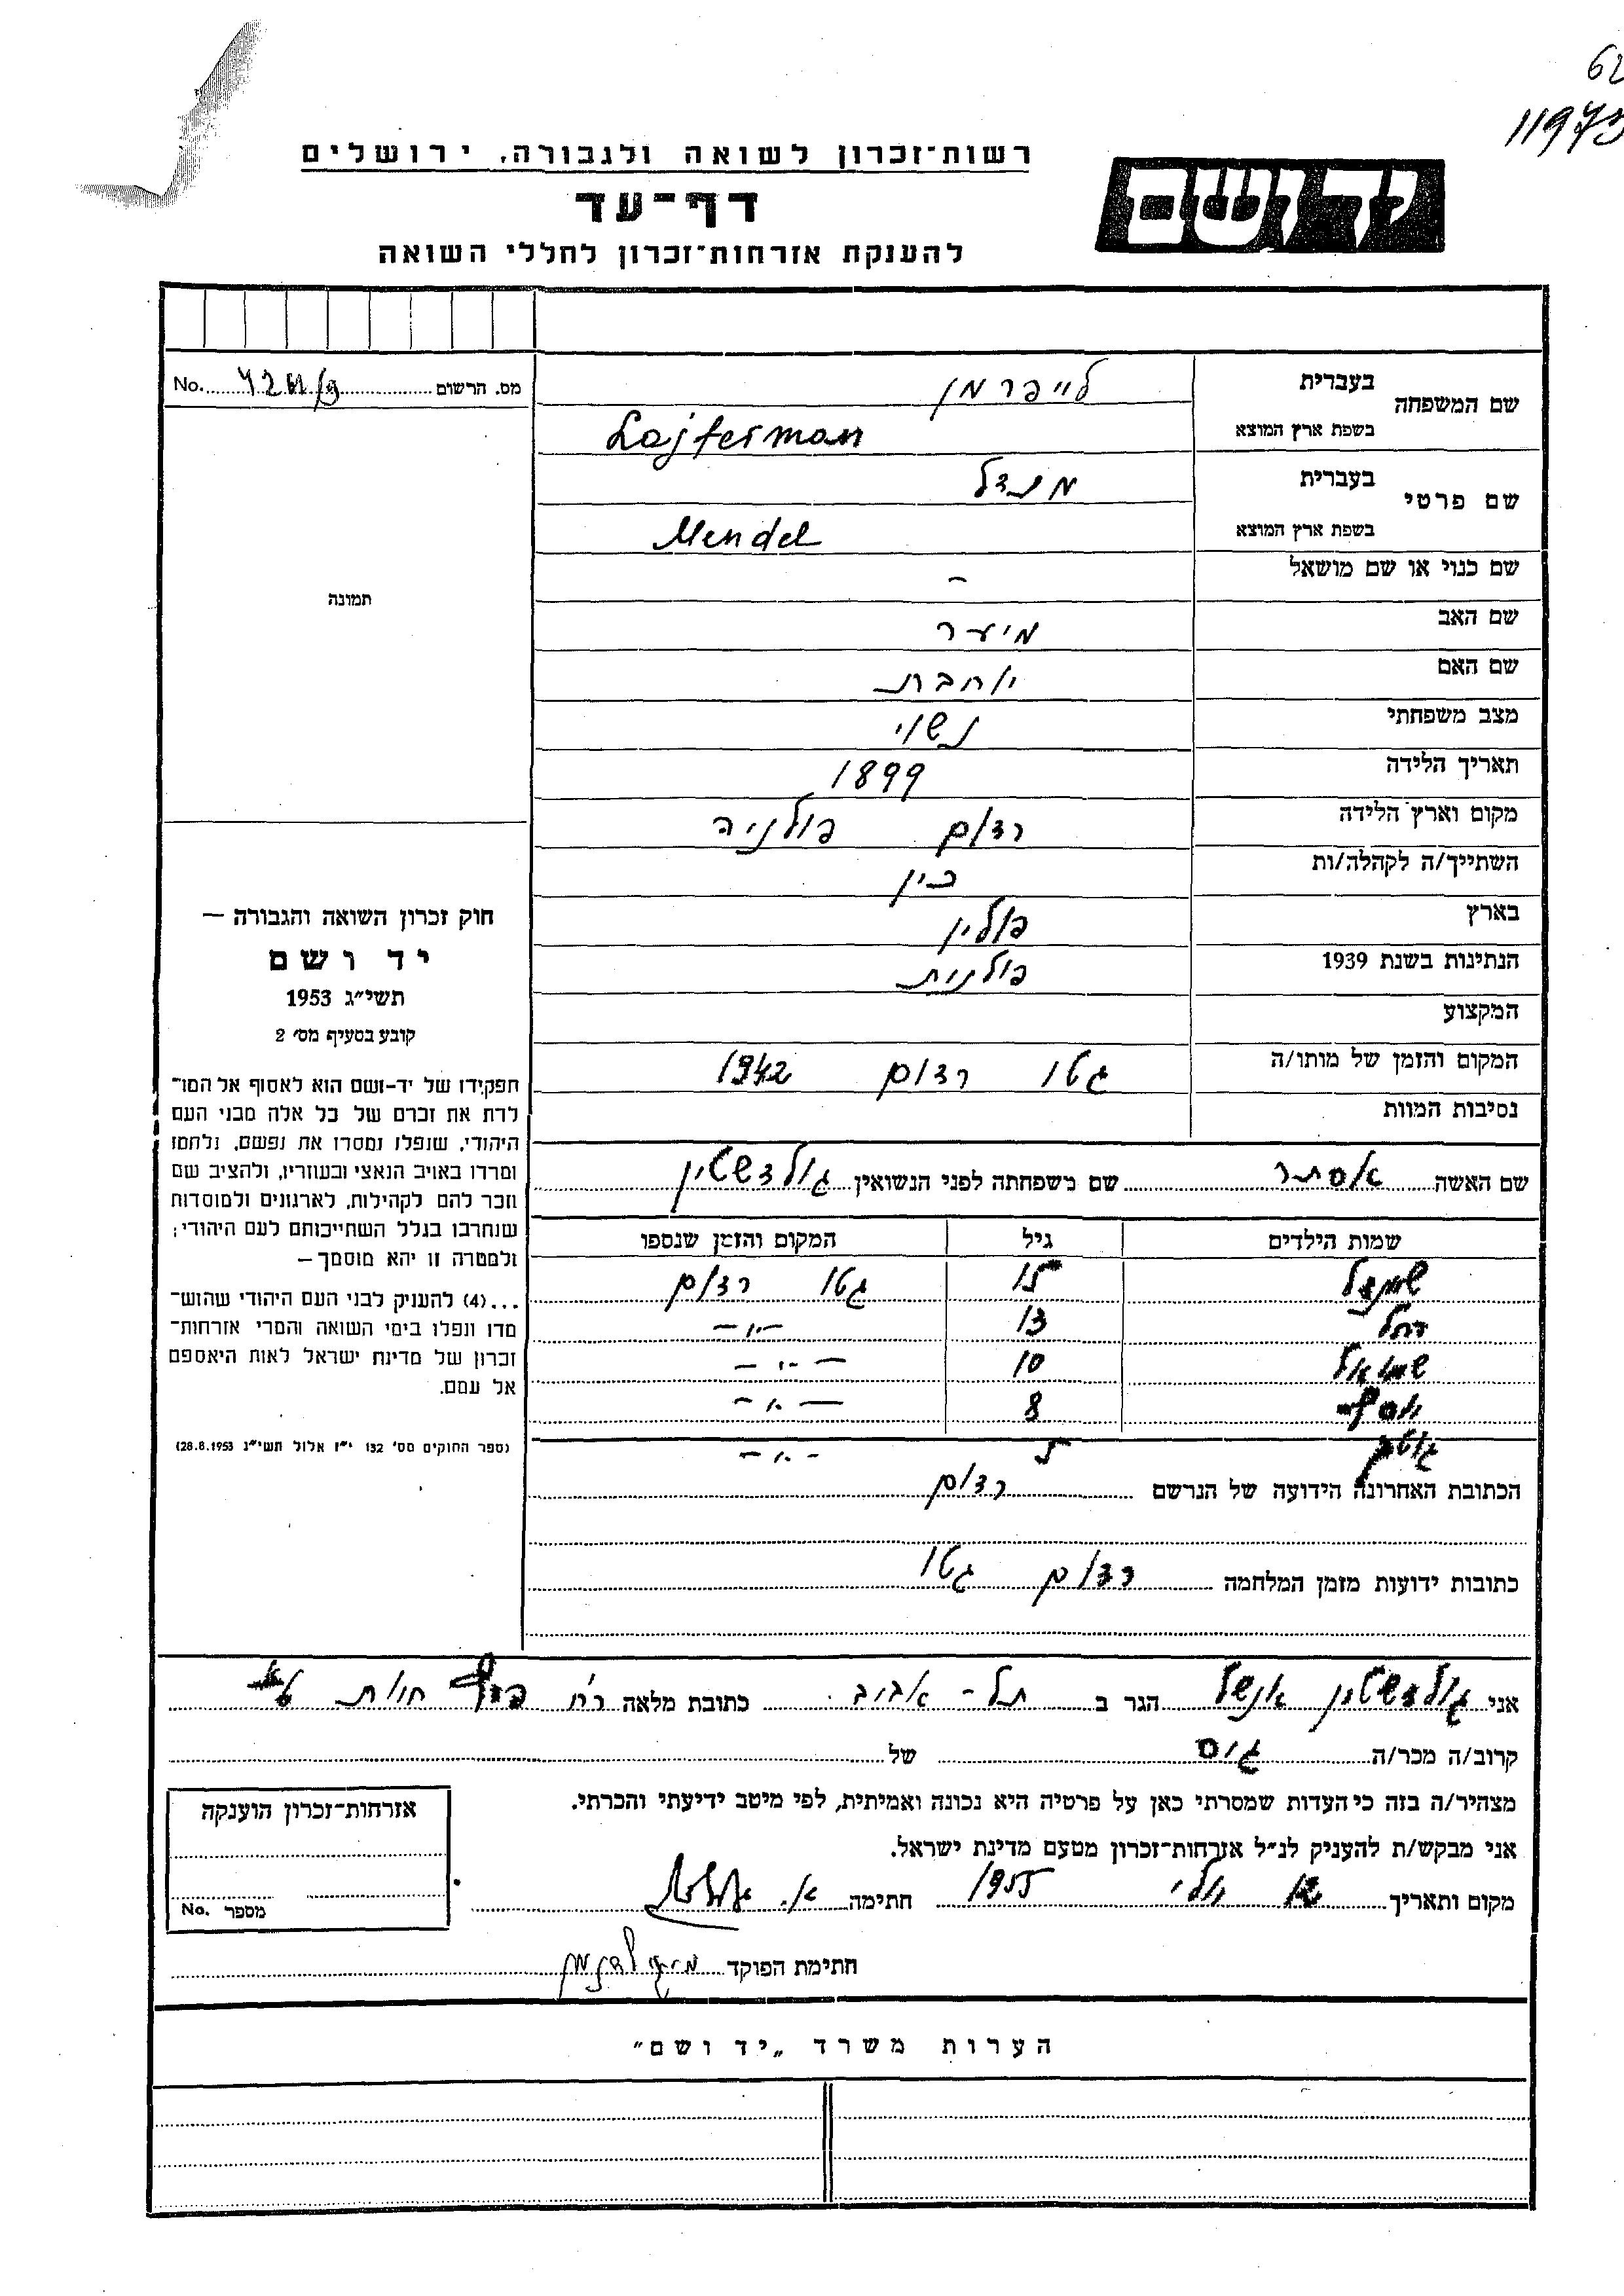 62
רשות־זכרון לשואה ולגבורה, ירושלים
דף־עד
להענקת אזרחות־זכרון לחללי השואה
יד ושם
מס. הרשום No.
שם המשפחה
בעברית לייפרמן
בשפת ארץ המוצא Lajferman
שם פרטי
בעברית מנדל
בשפת ארץ המוצא Mendel
שם כנוי או שם מושאל –
שם האב מיער
שם האם יוחבת
מצב משפחתי נשוי
תאריך הלידה 1899
מקום וארץ הלידה רדום פולניה
השתייך/ה לקהלה/ות
בארץ פולין
הנתינות בשנת 1939 פולנית
המקצוע
המקום והזמן של מותו/ה גטו רדום 1942
נסיבות המוות
תמונה
חוק זכרון השואה והגבורה –
יד ושם
תשי״ג 1953
קובע בסעיף מס׳ 2
תפקידו של יד-ושם הוא לאסוף אל המו־
לדת את זכרם של כל אלה מבני העם
היהודי, שנפלו ומסרו את נפשם, נלחמו
ומרדו באויב הנאצי ובעוזריו, ולהציב שם
וזכר להם לקהילות, לארגונים ולמוסדות
שנחרבו בגלל השתייכותם לעם היהודי;
ולמטרה זו יהא מוסמך –
...(4) להעניק לבני העם היהודי שהוש־
מדו ונפלו בימי השואה והמרי אזרחות־
זכרון של מדינת ישראל לאות היאספם
אל עמם.
(ספר החוקים מס׳ 132 י״ז אלול תשי״ג 28.8.1953)
שם האשה אסתר שם משפחתה לפני הנשואין גולדשטין
שמות הילדים גיל המקום והזמן שנספו
15 גטו רדום
רחל 13 –"–
שמואל 10 –"–
יוסף 8 –"–
5 –"–
הכתובת האחרונה הידועה של הנרשם רדום
כתובות ידועות מזמן המלחמה רדום גטו
אני גולדשטין אנשל הגר ב תל-אביב כתובת מלאה
קרוב/ה מכר/ה גיס של
מצהיר/ה בזה כי העדות שמסרתי כאן על פרטיה היא נכונה ואמיתית, לפי מיטב ידיעתי והכרתי.
אני מבקש/ת להעניק לנ״ל אזרחות־זכרון מטעם מדינת ישראל.
מקום ותאריך יולי 1955 חתימה א.
חתימת הפוקד
אזרחות־זכרון הוענקה
מספר No.
הערות משרד „יד ושם"